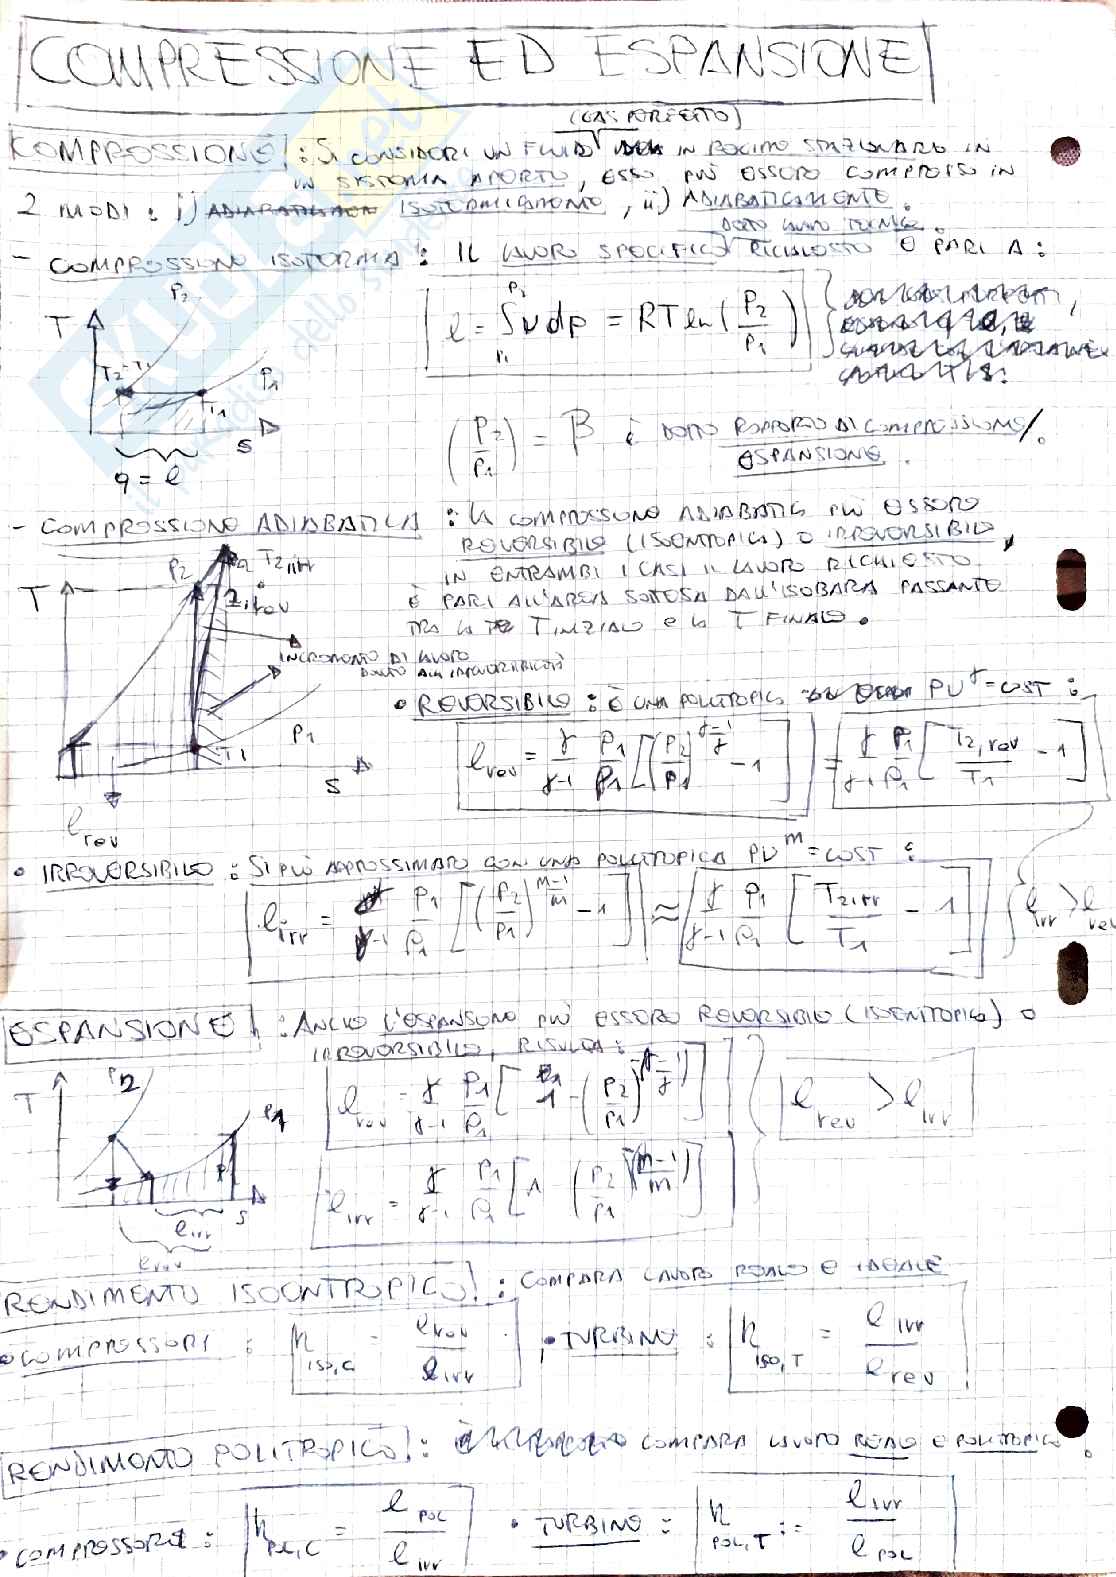 COMPRESSIONE ED ESPANSIONE
(GAS PERFETTO)
COMPRESSIONE: SI CONSIDERI UN FLUIDO IN REGIME STAZIONARIO IN
UN SISTEMA APERTO, ESSO PUÒ ESSERE COMPRESSO IN
2 MODI: i) ISOTERMICAMENTE, ii) ADIABATICAMENTE.
DETTO LAVORO TECNICO.
- COMPRESSIONE ISOTERMA: IL LAVORO SPECIFICO RICHIESTO È PARI A:
T P2 T2=T1 P1 T1 S
q = l
l = ∫ v dp = RT ln(P2/P1)
(P2/P1) = β È DETTO RAPPORTO DI COMPRESSIONE/
ESPANSIONE.
- COMPRESSIONE ADIABATICA: LA COMPRESSIONE ADIABATICA PUÒ ESSERE
REVERSIBILE (ISOENTROPICA) O IRREVERSIBILE,
IN ENTRAMBI I CASI IL LAVORO RICHIESTO
È PARI ALL'AREA SOTTESA DALL'ISOBARA PASSANTE
TRA LA T INIZIALE E LA T FINALE.
T P2 T2irr
2,rev
INCREMENTO DI LAVORO
DOVUTO ALL'IRREVERSIBILITÀ
P1 T1 S
l rev
• REVERSIBILE: È UNA POLITROPICA PV^γ=COST:
l rev = γ/(γ-1) P1/ρ1 [(P2/P1)^((γ-1)/γ) - 1] = γ/(γ-1) P1/ρ1 [T2,rev/T1 - 1]
• IRREVERSIBILE: SI PUÒ APPROSSIMARE CON UNA POLITROPICA PV^m=COST:
l irr = γ/(γ-1) P1/ρ1 [(P2/P1)^((m-1)/m) - 1] ≈ γ/(γ-1) P1/ρ1 [T2irr/T1 - 1] l irr > l rev
ESPANSIONE: ANCHE L'ESPANSIONE PUÒ ESSERE REVERSIBILE (ISOENTROPICA) O
IRREVERSIBILE, RISULTA:
T P2 P1 S
l irr
l rev
l rev = γ/(γ-1) P1/ρ1 [1 - (P2/P1)^((γ-1)/γ)] l rev > l irr
l irr = γ/(γ-1) P1/ρ1 [1 - (P2/P1)^((m-1)/m)]
RENDIMENTO ISOENTROPICO: COMPARA LAVORO REALE E IDEALE
• COMPRESSORI: η iso,C = l rev / l irr • TURBINE: η iso,T = l irr / l rev
RENDIMENTO POLITROPICO: COMPARA LAVORO REALE E POLITROPICO.
• COMPRESSORI: η POL,C = l POL / l irr • TURBINE: η POL,T := l irr / l POL